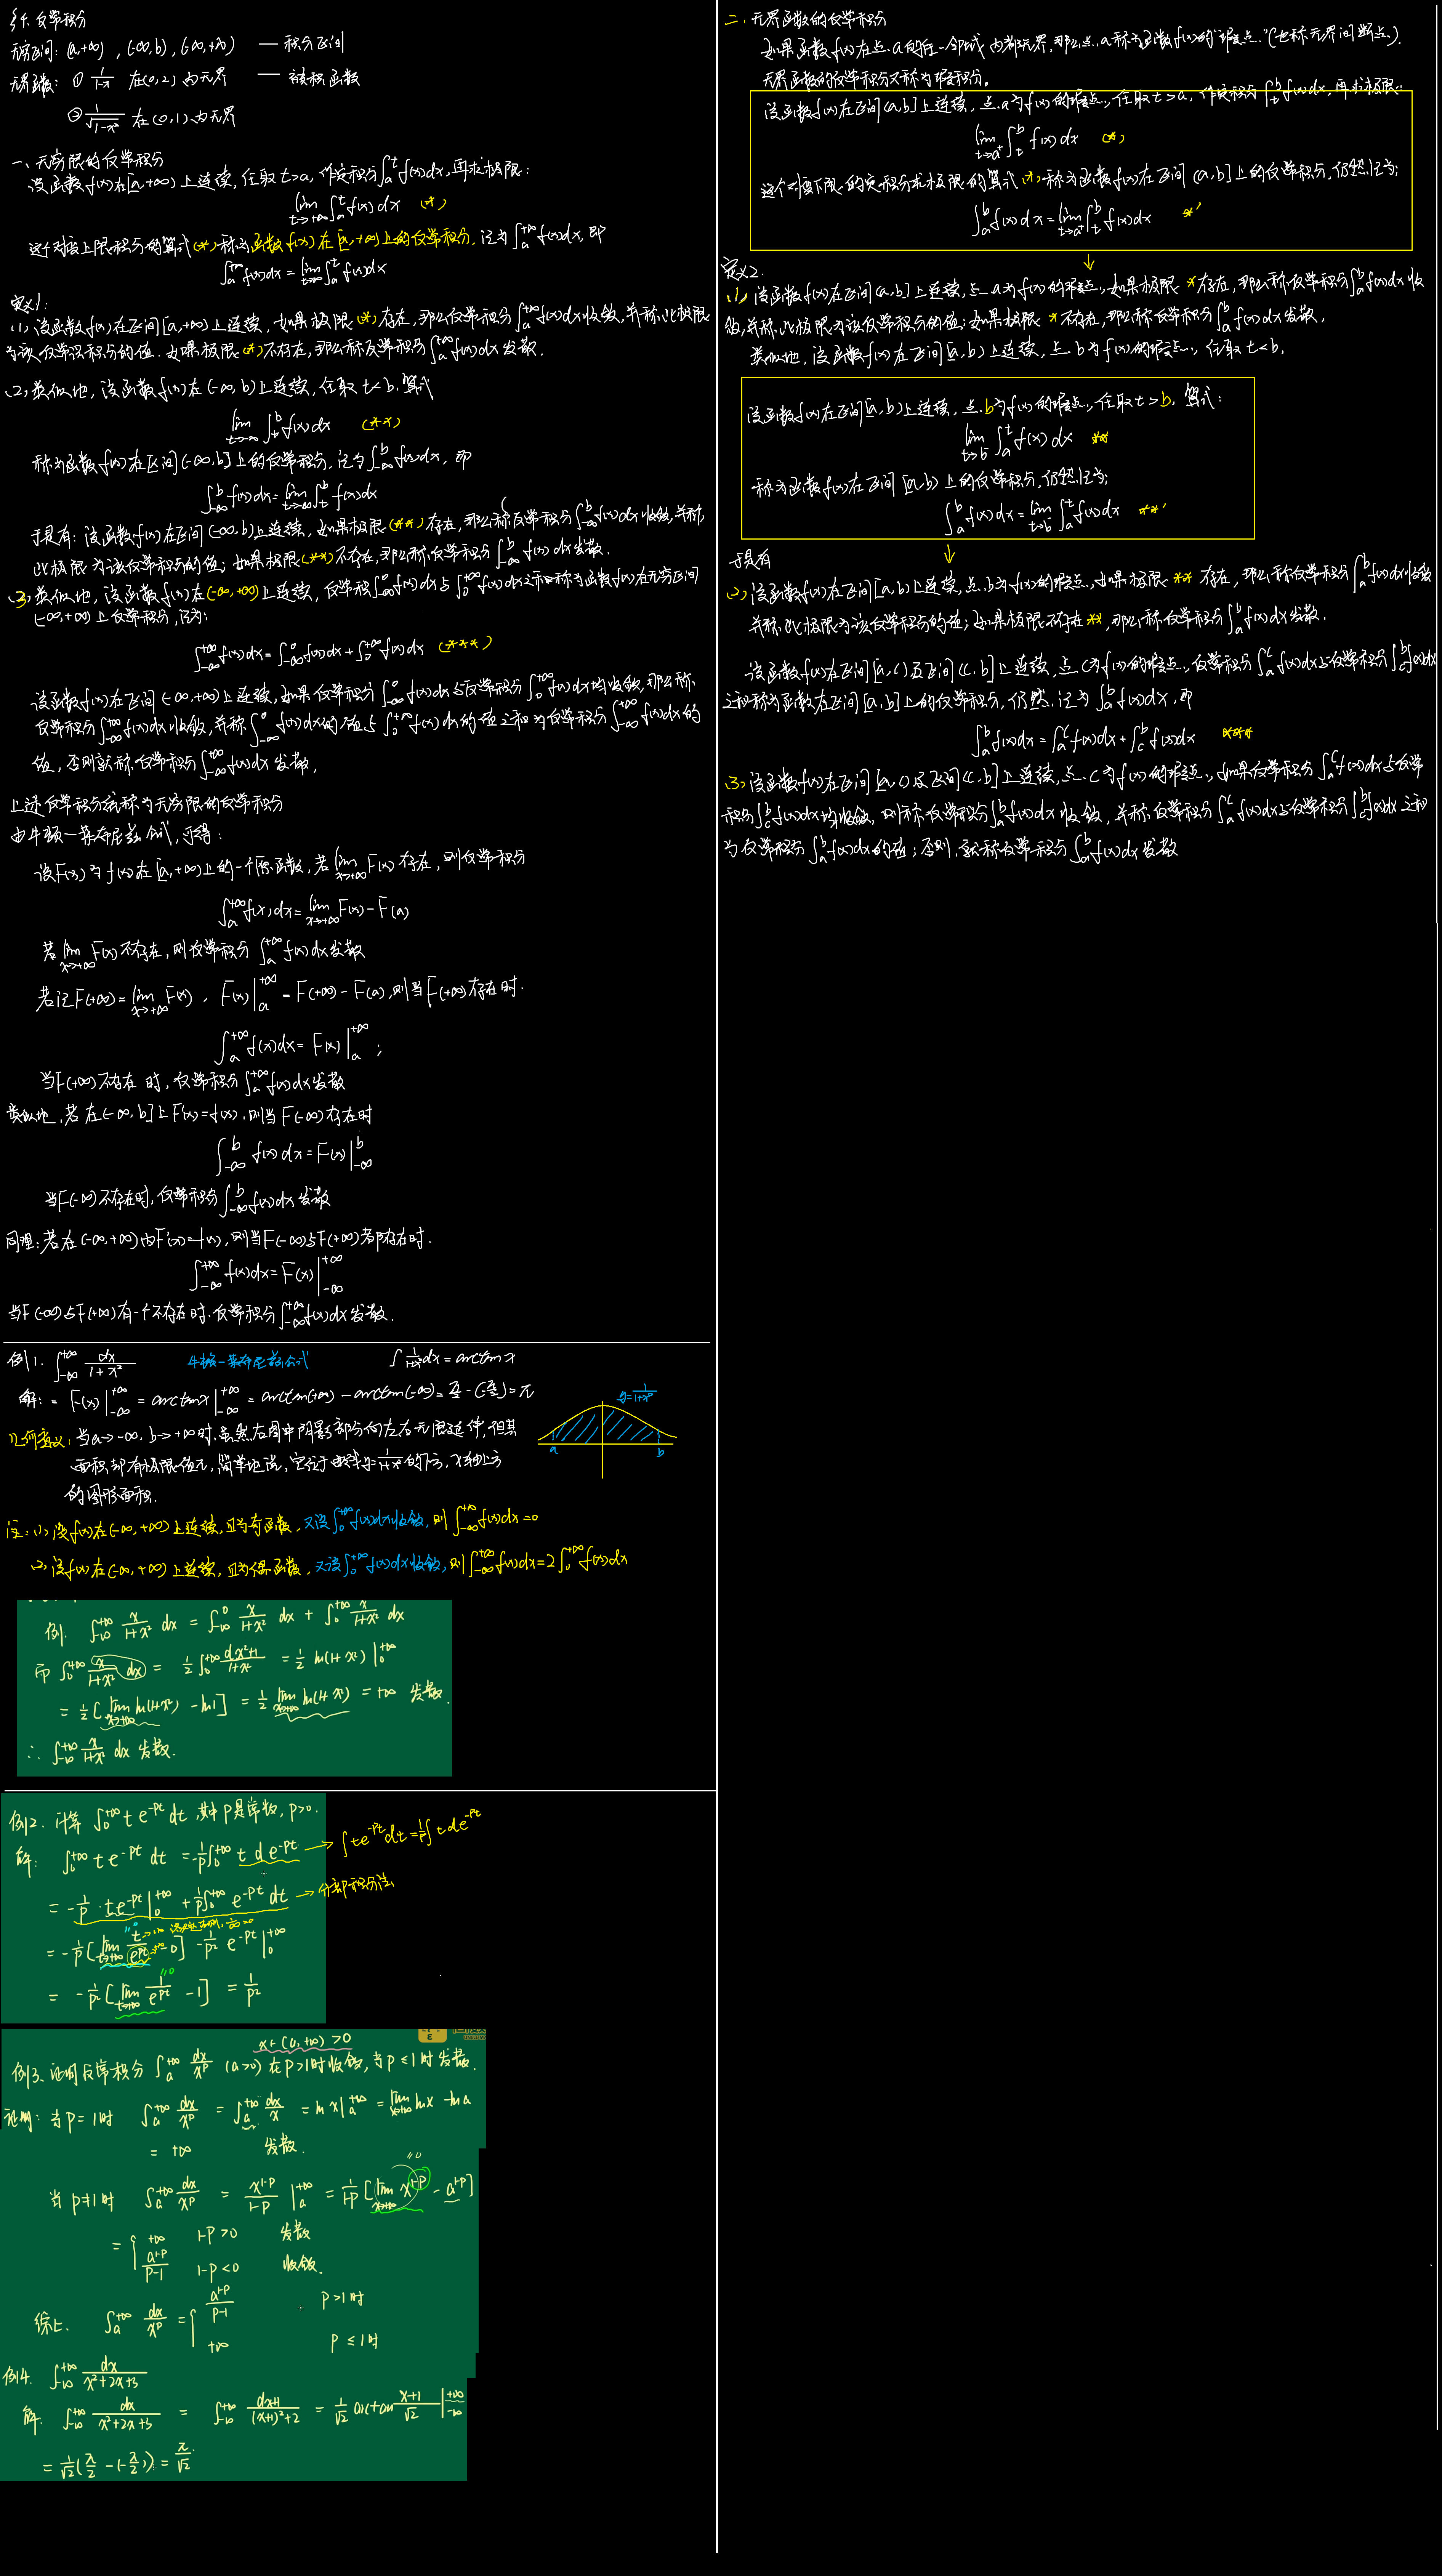 §4. 反常积分
无穷区间: (a,+∞) , (-∞,b), (-∞,+∞) — 积分区间
无界函数: ① 1/(1-x) 在(0,2)内无界 — 被积函数
② 1/√(1-x²) 在(0,1)内无界
一、无穷限的反常积分
设函数f(x)在[a,+∞)上连续,任取t>a,作定积分∫_a^t f(x)dx,再求极限:
lim_{t→+∞} ∫_a^t f(x)dx (*)
这个对变上限积分的算式(*)称为函数f(x)在[a,+∞)上的反常积分,记为∫_a^{+∞} f(x)dx,即
∫_a^{+∞} f(x)dx = lim_{t→+∞} ∫_a^t f(x)dx
定义1:
(1) 设函数f(x)在区间[a,+∞)上连续,如果极限(*)存在,那么反常积分∫_a^{+∞} f(x)dx收敛,并称此极限
为该反常积分的值.如果极限(*)不存在,那么称反常积分∫_a^{+∞} f(x)dx发散.
(2) 类似地,设函数f(x)在(-∞,b)上连续,任取t<b.算式
lim_{t→-∞} ∫_t^b f(x)dx (**)
称为函数f(x)在区间(-∞,b]上的反常积分,记为∫_{-∞}^b f(x)dx,即
∫_{-∞}^b f(x)dx = lim_{t→-∞} ∫_t^b f(x)dx
于是有: 设函数f(x)在区间(-∞,b)上连续,如果极限(**)存在,那么称反常积分∫_{-∞}^b f(x)dx收敛,并称,
此极限为该反常积分的值;如果极限(**)不存在,那么称反常积分∫_{-∞}^b f(x)dx发散.
(3) 类似地,设函数f(x)在(-∞,+∞)上连续,反常积∫_{-∞}^0 f(x)dx与∫_0^{+∞} f(x)dx之和称为函数f(x)在无穷区间
(-∞,+∞)上反常积分,记为:
∫_{-∞}^{+∞} f(x)dx = ∫_{-∞}^0 f(x)dx + ∫_0^{+∞} f(x)dx (***)
设函数f(x)在区间(-∞,+∞)上连续,如果反常积分∫_{-∞}^0 f(x)dx与反常积分∫_0^{+∞} f(x)dx均收敛,那么称,
反常积分∫_{-∞}^{+∞} f(x)dx收敛,并称∫_{-∞}^0 f(x)dx的值与∫_0^{+∞} f(x)dx的值之和为反常积分∫_{-∞}^{+∞} f(x)dx的
值,否则就称反常积分∫_{-∞}^{+∞} f(x)dx发散,
上述反常积分统称为无穷限的反常积分
由牛顿—莱布尼兹公式,可得:
设F(x)为f(x)在[a,+∞)上的一个原函数,若lim_{x→+∞} F(x)存在,则反常积分
∫_a^{+∞} f(x)dx = lim_{x→+∞} F(x) - F(a)
若lim_{x→+∞} F(x)不存在,则反常积分∫_a^{+∞} f(x)dx发散
若记F(+∞) = lim_{x→+∞} F(x), F(x)|_a^{+∞} = F(+∞) - F(a),则当F(+∞)存在时.
∫_a^{+∞} f(x)dx = F(x)|_a^{+∞};
当F(+∞)不存在时,反常积分∫_a^{+∞} f(x)dx发散
类似地,若在(-∞,b]上F'(x)=f(x),则当F(-∞)存在时
∫_{-∞}^b f(x)dx = F(x)|_{-∞}^b
当F(-∞)不存在时,反常积分∫_{-∞}^b f(x)dx发散
同理:若在(-∞,+∞)内F'(x)=f(x),则当F(-∞)与F(+∞)都存在时.
∫_{-∞}^{+∞} f(x)dx = F(x)|_{-∞}^{+∞}
当F(-∞)与F(+∞)有一个不存在时,反常积分∫_{-∞}^{+∞} f(x)dx发散.
例1. ∫_{-∞}^{+∞} dx/(1+x²) 牛顿-莱布尼兹公式 ∫1/(1+x²)dx = arctanx
解: = F(x)|_{-∞}^{+∞} = arctanx|_{-∞}^{+∞} = arctan(+∞) - arctan(-∞) = π/2 - (-π/2) = π
y=1/(1+x²)
a b
几何意义:当a→-∞. b→+∞时.虽然左图中阴影部分向左右无限延伸,但其
面积却有极限值π,简单地说,它位于曲线y=1/(1+x²)的下方,x轴上方
的图形面积.
注:(1) 设f(x)在(-∞,+∞)上连续,且为奇函数,又设∫_0^{+∞} f(x)dx收敛,则∫_{-∞}^{+∞} f(x)dx=0
(2) 设f(x)在(-∞,+∞)上连续,且为偶函数,又设∫_0^{+∞} f(x)dx收敛,则∫_{-∞}^{+∞} f(x)dx=2∫_0^{+∞} f(x)dx
例. ∫_{-∞}^{+∞} x/(1+x²) dx = ∫_{-∞}^0 x/(1+x²) dx + ∫_0^{+∞} x/(1+x²) dx
而 ∫_0^{+∞} x/(1+x²) dx = 1/2 ∫_0^{+∞} dx²+1/(1+x²) = 1/2 ln(1+x²)|_0^{+∞}
= 1/2 [lim_{x→+∞} ln(1+x²) - ln1] = 1/2 lim_{x→+∞} ln(1+x²) = +∞ 发散.
∴ ∫_{-∞}^{+∞} x/(1+x²) dx 发散.
例2. 计算 ∫_0^{+∞} t e^{-pt} dt ,其中P是常数, p>0.
解: ∫_0^{+∞} t e^{-pt} dt = -1/p ∫_0^{+∞} t d e^{-pt} → ∫te^{-pt}dt = 1/p ∫ t d e^{-pt}
= -1/p · te^{-pt}|_0^{+∞} + 1/p ∫_0^{+∞} e^{-pt} dt → 分部积分法
= -1/p [lim_{t→+∞} t/e^{pt} - 0] - 1/p² e^{-pt}|_0^{+∞}
= -1/p² [lim_{t→+∞} 1/e^{pt} - 1] = 1/p²
x∈(a,+∞)>0
例3. 证明反常积分 ∫_a^{+∞} dx/x^p (a>0) 在P>1时收敛,当P≤1时发散.
证明: 当P=1时 ∫_a^{+∞} dx/x^p = ∫_a^{+∞} dx/x = ln x|_a^{+∞} = lim_{x→+∞} lnx - lna
= +∞ 发散.
当p≠1时 ∫_a^{+∞} dx/x^p = x^{1-p}/(1-p)|_a^{+∞} = 1/(1-p) [lim_{x→+∞} x^{1-p} - a^{1-p}]
= { +∞ 1-P>0 发散
a^{1-p}/(p-1) 1-P<0 收敛.
综上. ∫_a^{+∞} dx/x^p = { a^{1-p}/(p-1) P>1时
+∞ P≤1时
例4. ∫_{-∞}^{+∞} dx/(x²+2x+3)
解. ∫_{-∞}^{+∞} dx/(x²+2x+3) = ∫_{-∞}^{+∞} dx+1/((x+1)²+2) = 1/√2 arctan (x+1)/√2 |_{-∞}^{+∞}
= 1/√2 (π/2 - (-π/2)) = π/√2
二、无界函数的反常积分
如果函数f(x)在点a的任一邻域内都无界,那么点a称为函数f(x)的瑕点.(也称无界间断点).
无界函数的反常积分又称为瑕积分.
设函数f(x)在区间(a,b]上连续,点a为f(x)的瑕点,任取t>a,作定积分∫_t^b f(x)dx,再求极限:
lim_{t→a⁺} ∫_t^b f(x)dx (*)
这个对变下限的定积分求极限的算式(*)称为函数f(x)在区间(a,b]上的反常积分,仍然记为;
∫_a^b f(x)dx = lim_{t→a⁺} ∫_t^b f(x)dx *'
定义2.
(1) 设函数f(x)在区间(a,b]上连续,点a为f(x)的瑕点,如果极限*存在,那么称反常积分∫_a^b f(x)dx收
敛,并称此极限为该反常积分的值;如果极限*不存在,那么称反常积分∫_a^b f(x)dx发散,
类似地,设函数f(x)在区间[a,b)上连续,点b为f(x)的瑕点,任取t<b,
设函数f(x)在区间[a,b)上连续,点b为f(x)的瑕点,任取t>b,算式:
lim_{t→b⁻} ∫_a^t f(x)dx **
称为函数f(x)在区间[a,b)上的反常积分,仍然记为;
∫_a^b f(x)dx = lim_{t→b⁻} ∫_a^t f(x)dx **'
于是有
(2) 设函数f(x)在区间[a,b)上连续,点b为f(x)的瑕点,如果极限**存在,那么称反常积分∫_a^b f(x)dx收敛
并称此极限为该反常积分的值;如果极限不存在**,那么称反常积分∫_a^b f(x)dx发散.
设函数f(x)在区间[a,c)及区间(c,b]上连续,点c为f(x)的瑕点,反常积分∫_a^c f(x)dx与反常积分∫_c^b f(x)dx
之和称为函数在区间[a,b]上的反常积分,仍然记为∫_a^b f(x)dx,即
∫_a^b f(x)dx = ∫_a^c f(x)dx + ∫_c^b f(x)dx ***
(3) 设函数f(x)在区间[a,c)及区间(c,b]上连续,点c为f(x)的瑕点,如果反常积分∫_a^c f(x)dx与反常
积分∫_c^b f(x)dx均收敛,则称反常积分∫_a^b f(x)dx收敛,并称反常积分∫_a^c f(x)dx与反常积分∫_c^b f(x)dx之和
为反常积分∫_a^b f(x)dx的值;否则,就称反常积分∫_a^b f(x)dx发散